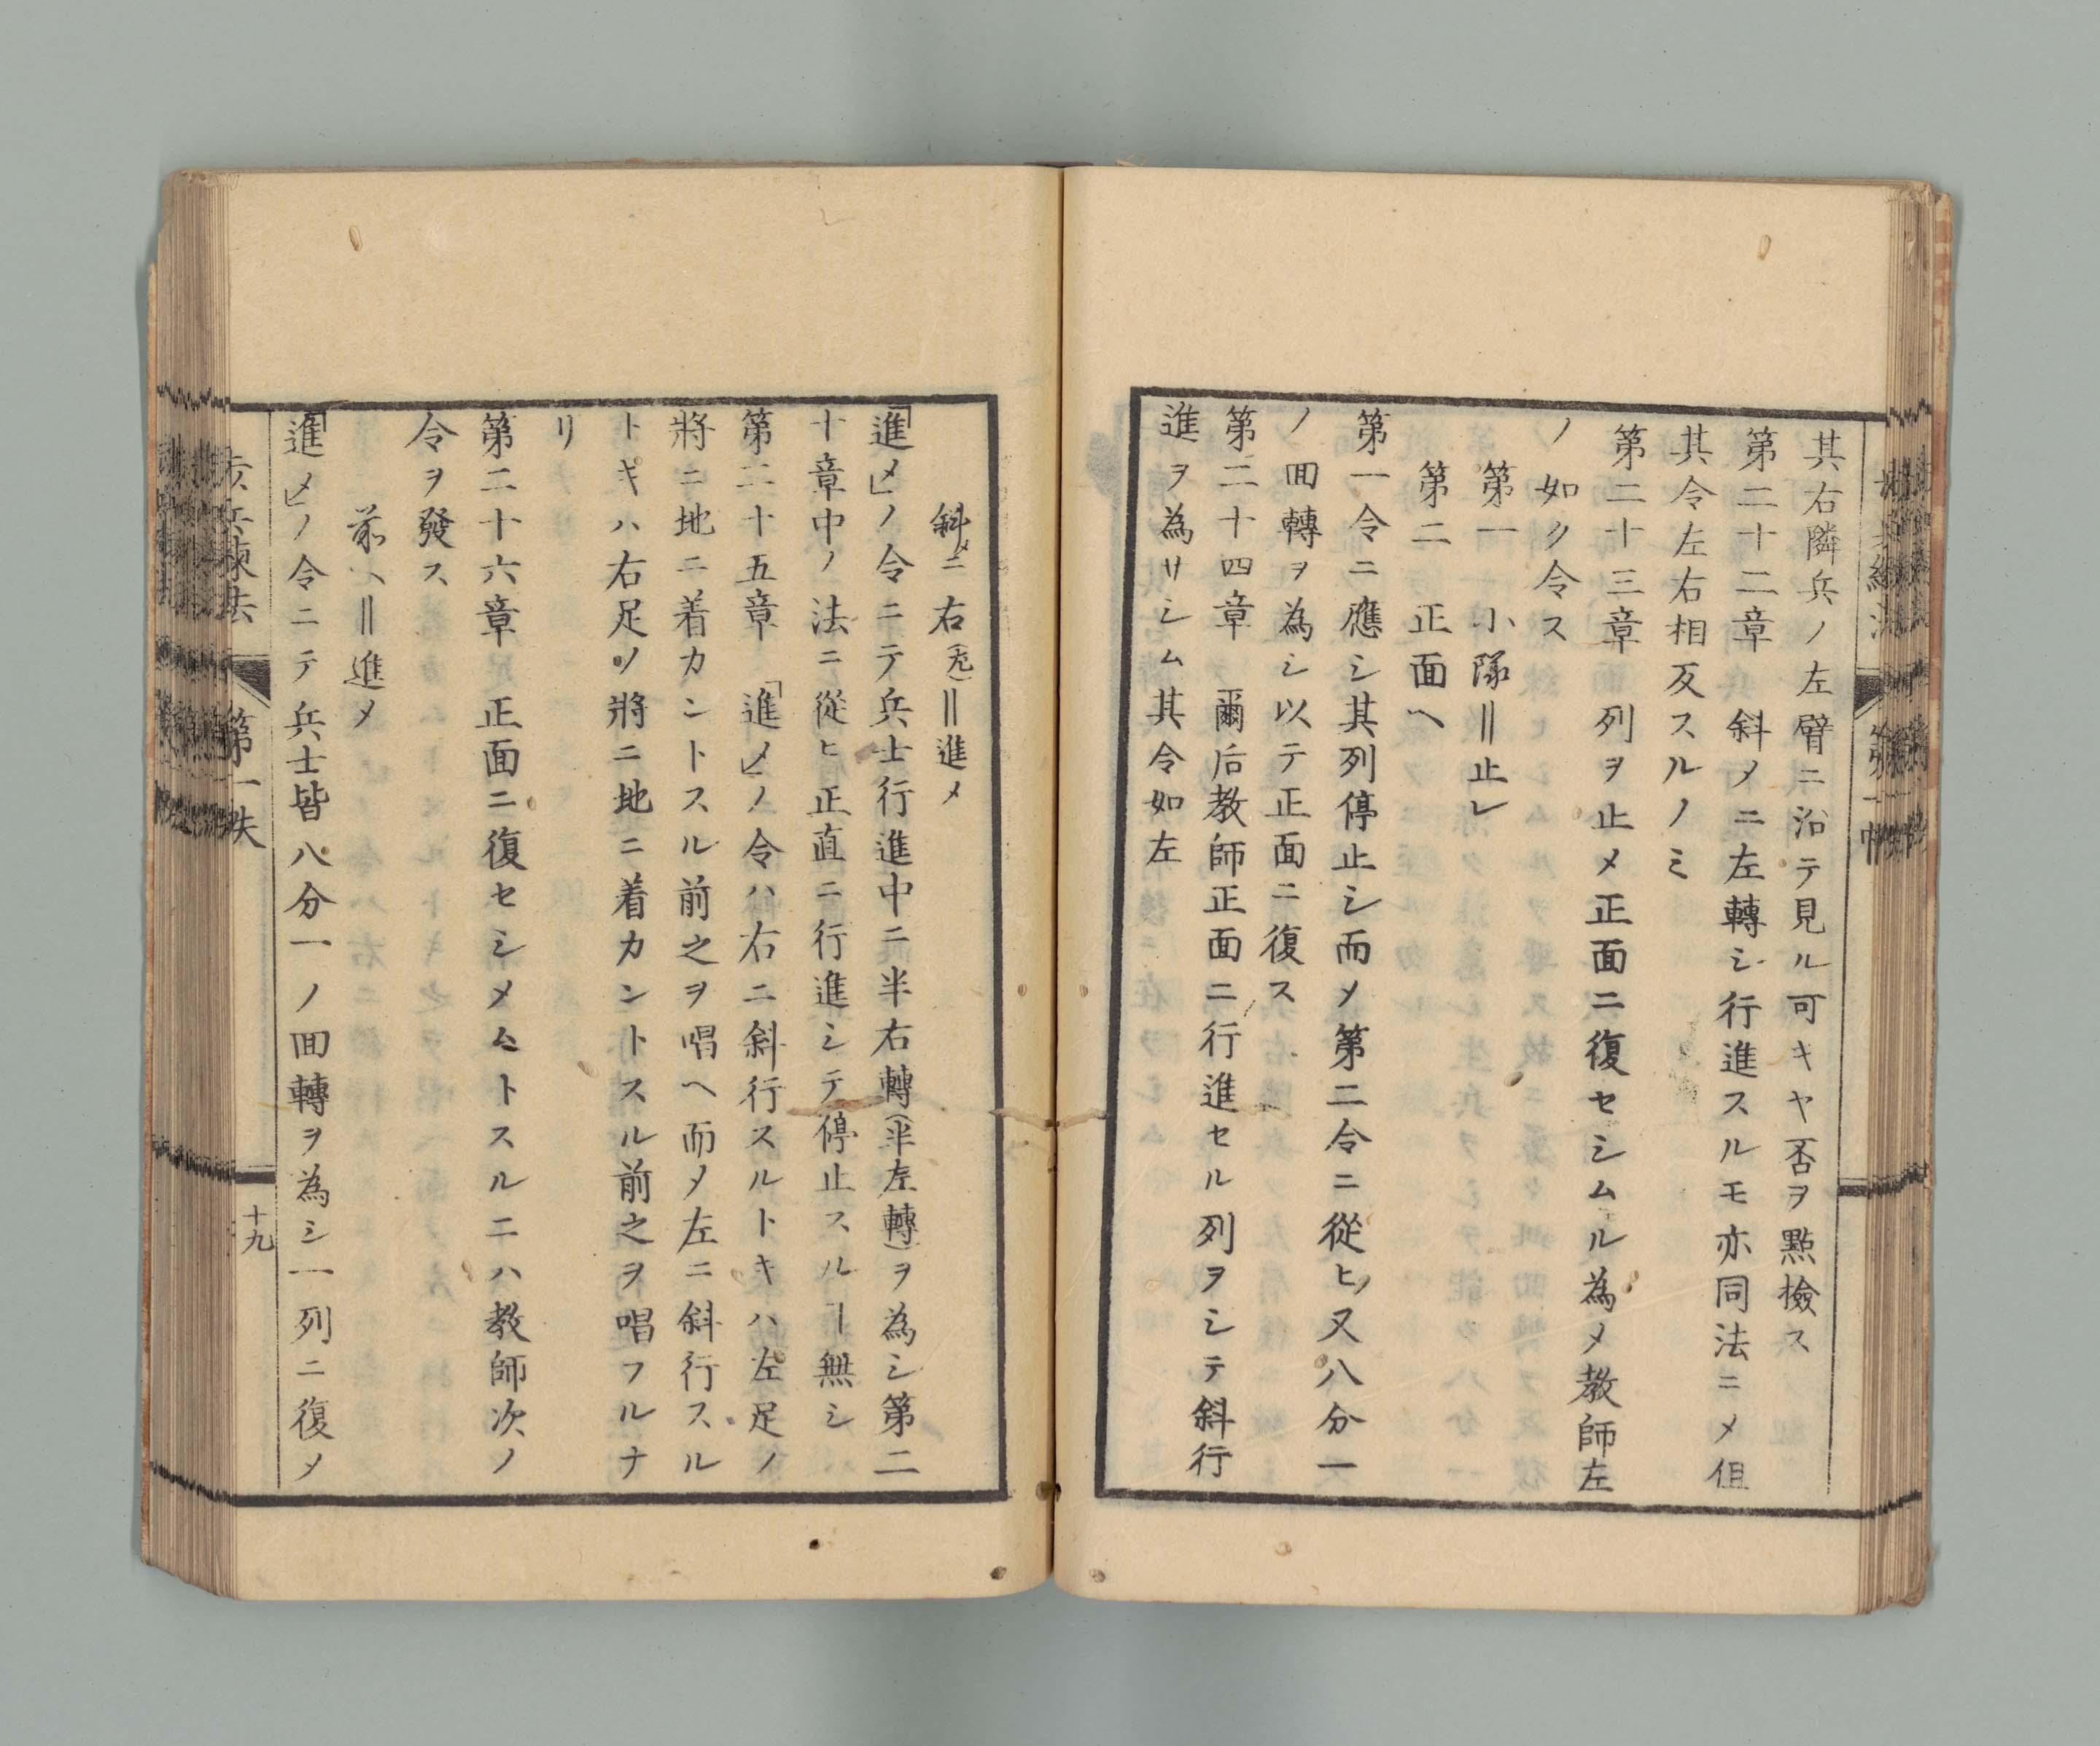 其右隣兵ノ左臂ニ沿テ見ル可キヤ否ヲ點檢ス
第二十二章 斜メニ左轉シ行進スルモ亦同法ニメ但
其令左右相反スルノミ
第二十三章 列ヲ止メ正面ニ復セシムル為メ教師左
ノ如ク令ス
第一 小隊‖止レ
第二 正面ヘ
第一令ニ應シ其列停止シ而メ第二令ニ從ヒ又八分一
ノ囬轉ヲ為シ以テ正面ニ復ス
第二十四章 爾后教師正面ニ行進セル列ヲシテ斜行
進ヲ為サシム其令如左
斜メニ右(左)‖進メ
「進メ」ノ令ニテ兵士行進中ニ半右轉(半左轉)ヲ為シ第二
十章中ノ法ニ從ヒ正直ニ行進シテ停止スルヿ無シ
第二十五章 「進メ」ノ令ハ右ニ斜行スルトキハ左足ノ
將ニ地ニ着カントスル前之ヲ唱ヘ而メ左ニ斜行スル
トキハ右足ノ將ニ地ニ着カントスル前之ヲ唱フルナ
リ
第二十六章 正面ニ復セシメムトスルニハ教師次ノ
令ヲ發ス
前ヘ‖進メ
「進メ」ノ令ニテ兵士皆八分一ノ囬轉ヲ為シ一列ニ復メ
第一帙
十九